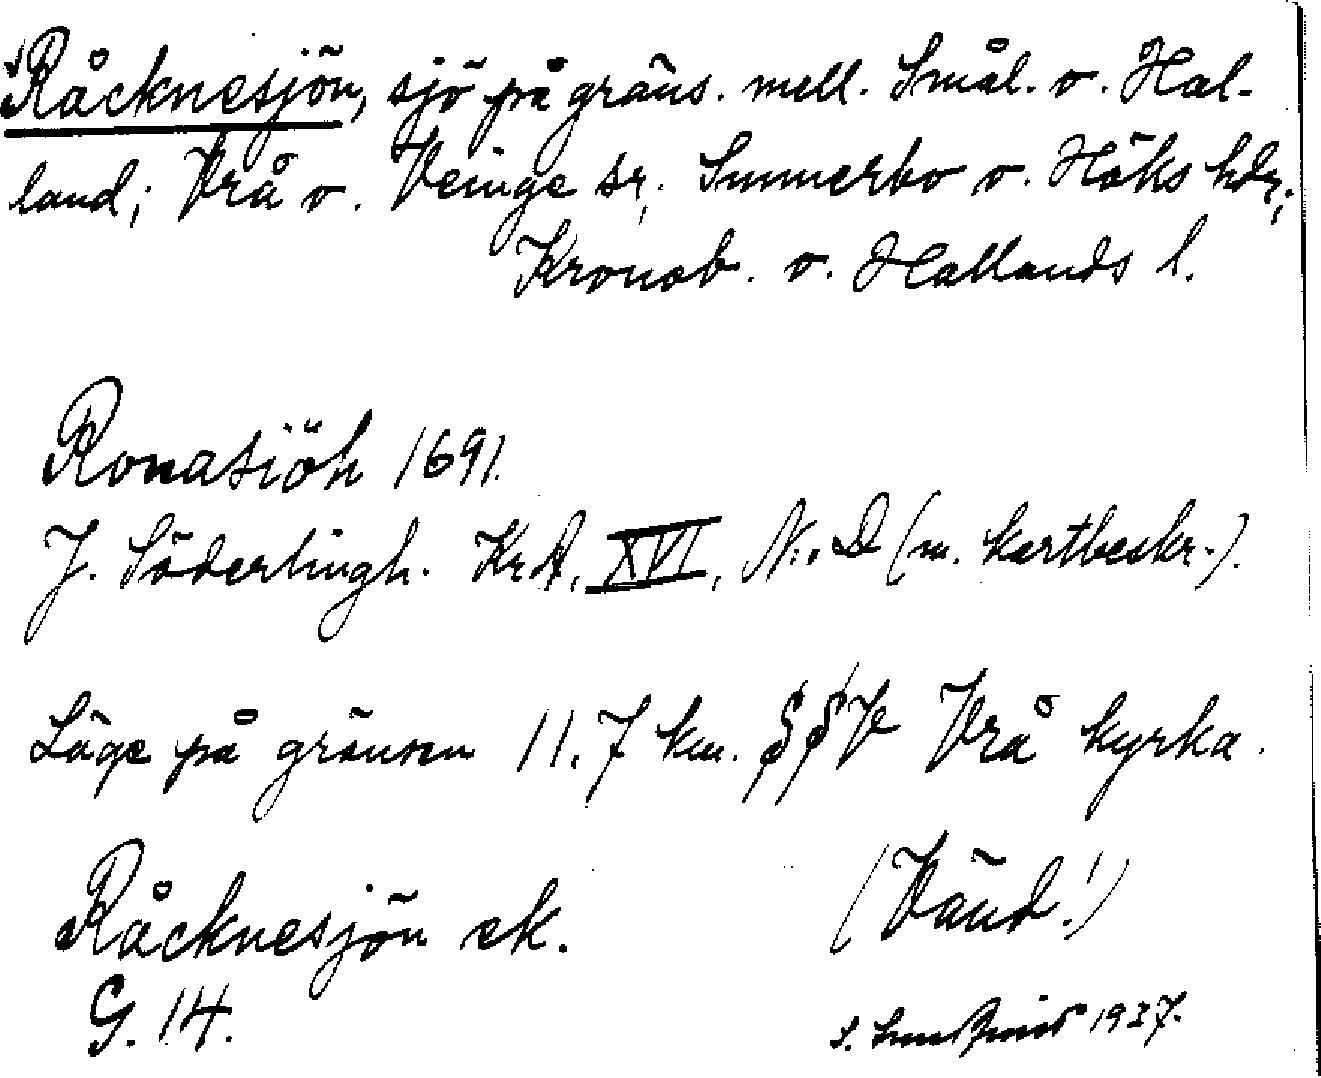 Råcknesjön, sjö på gräns. mell. Smål. o. Hal-
land; Vrå o. Veinge sr; Sunnerbo o. Höks hdr;
Kronob. o. Hallands l.
Ronasiöh 1691.
J. Söderlingh. KrA, XVI, N:. D (m. kartbeskr.).
Läge på gränsen 11.7 km. SSV Vrå kyrka.
Råcknesjön ek.
(Vänd!)
G. 14.
S. 1937.